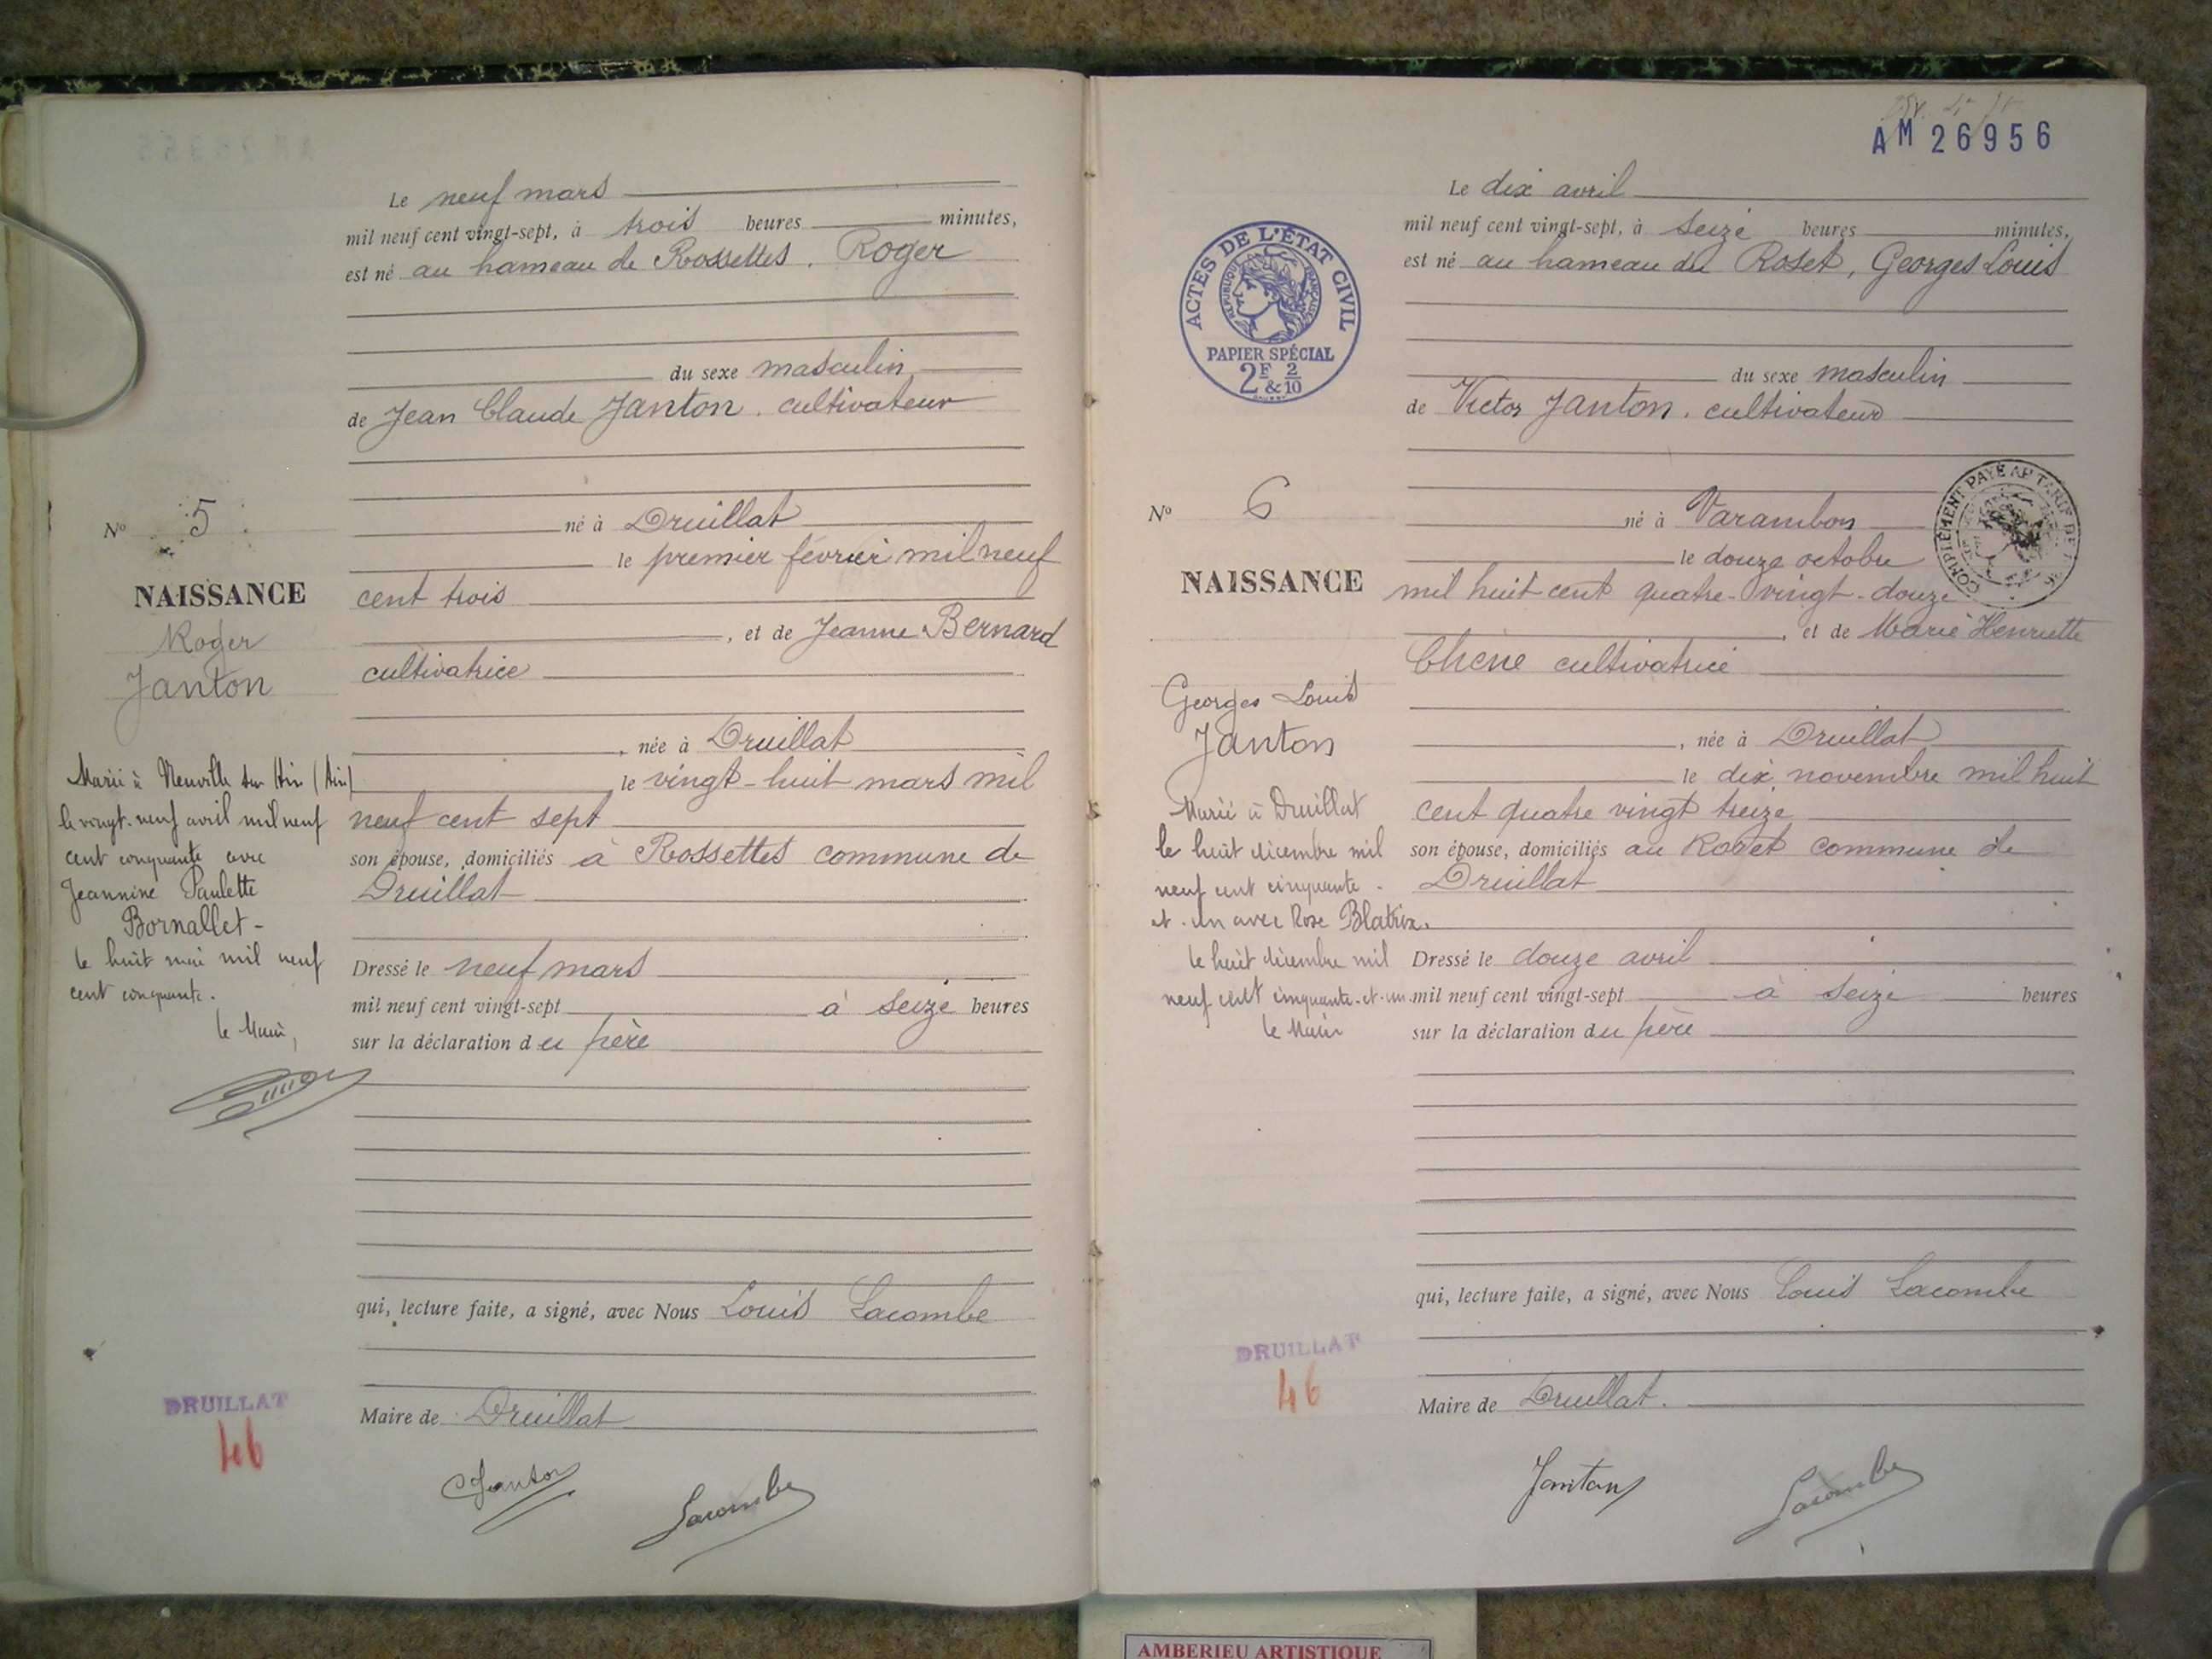 Le neuf mars
mil neuf cent vingt-sept, à trois heures minutes,
est né au hameau de Rossettes. Roger
du sexe masculin
de Jean Claude Janton. cultivateur
né à Druillat
le premier février mil neuf
cent trois
, et de Jeanne Bernard
cultivatrice
, née à Druillat
le vingt-huit mars mil
neuf cent sept
son épouse, domiciliés à Rossettes commune de
Druillat
Dressé le neuf mars
mil neuf cent vingt-sept à seize heures
sur la déclaration du père
qui, lecture faite, a signé, avec Nous Louis Lacombe
Maire de Druillat
Janton
Lacombe
N° 5
NAISSANCE
Roger
Janton
Marié à Neuville sur Ain (Ain)
le vingt-neuf avril mil neuf
cent cinquante avec
Jeannine Paulette
Bornallet -
le huit mai mil neuf
cent cinquante.
le Maire,
DRUILLAT
46
AM 26956
Le dix avril
mil neuf cent vingt-sept, à seize heures minutes,
est né au hameau du Roset, Georges Louis
du sexe masculin
de Victor Janton. cultivateur
né à Varambon
le douze octobre
mil huit cent quatre-vingt-douze
, et de Marie Henriette
Chêne cultivatrice
, née à Druillat
le dix novembre mil huit
cent quatre vingt treize
son épouse, domiciliés au Roset commune de
Druillat
Dressé le douze avril
mil neuf cent vingt-sept à seize heures
sur la déclaration du père
qui, lecture faite, a signé, avec Nous Louis Lacombe
Maire de Druillat.
Janton
Lacombe
ACTES DE L'ÉTAT CIVIL
RÉPUBLIQUE FRANÇAISE
PAPIER SPÉCIAL
2F 2
& 10
COMPLÉMENT PAYÉ AU TARIF DE
N° 6
NAISSANCE
Georges Louis
Janton
Marié à Druillat
le huit décembre mil
neuf cent cinquante -
et-un avec Rose Blatrix.
le huit décembre mil
neuf cent cinquante-et-un
le Maire
DRUILLAT
46
AMBERIEU ARTISTIQUE